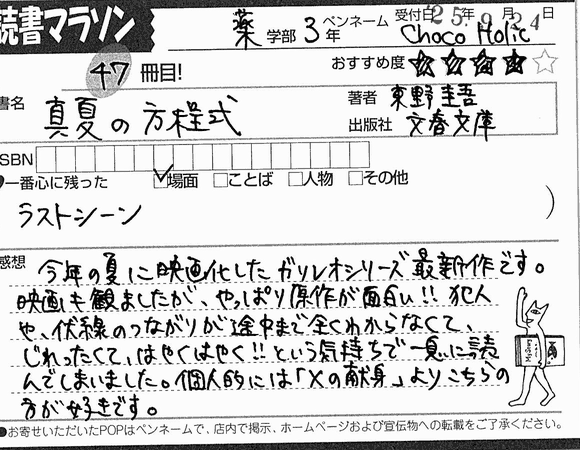 読書マラソン
薬 学部 3 年 ペンネーム Choco Holic 受付日 25年 9月 24日
47 冊目!
おすすめ度 ★★★★☆
書名 真夏の方程式
著者 東野圭吾
出版社 文春文庫
ISBN
一番心に残った ☑場面 □ことば □人物 □その他
ラストシーン )
感想 今年の夏に映画化したガリレオシリーズ最新作です。
映画も観ましたが、やっぱり原作が面白い!! 犯人
や、伏線のつながりが途中まで全くわからなくて、
じれったくて、はやくはやく!!という気持ちで一気に読
んでしまいました。個人的には「Xの献身」よりこちらの
方が好きです。
●お寄せいただいたPOPはペンネームで、店内で掲示、ホームページおよび宣伝物への転載をご了承ください。